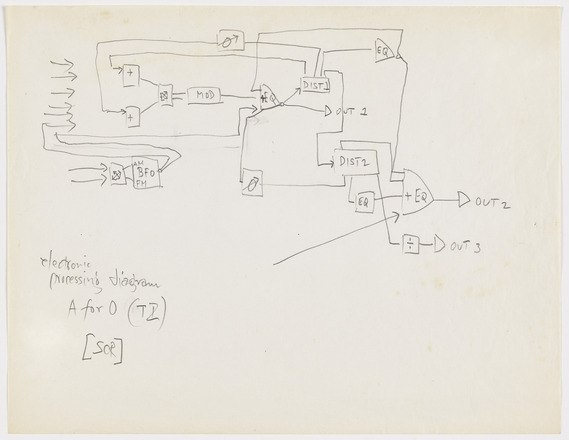 +
+
MOD
+EQ
DIST1
EQ
OUT 1
AM
BFO
FM
DIST2
EQ
+ EQ
OUT 2
÷
OUT 3
electronic
processing diagram
A for O (TI)
[SOR]